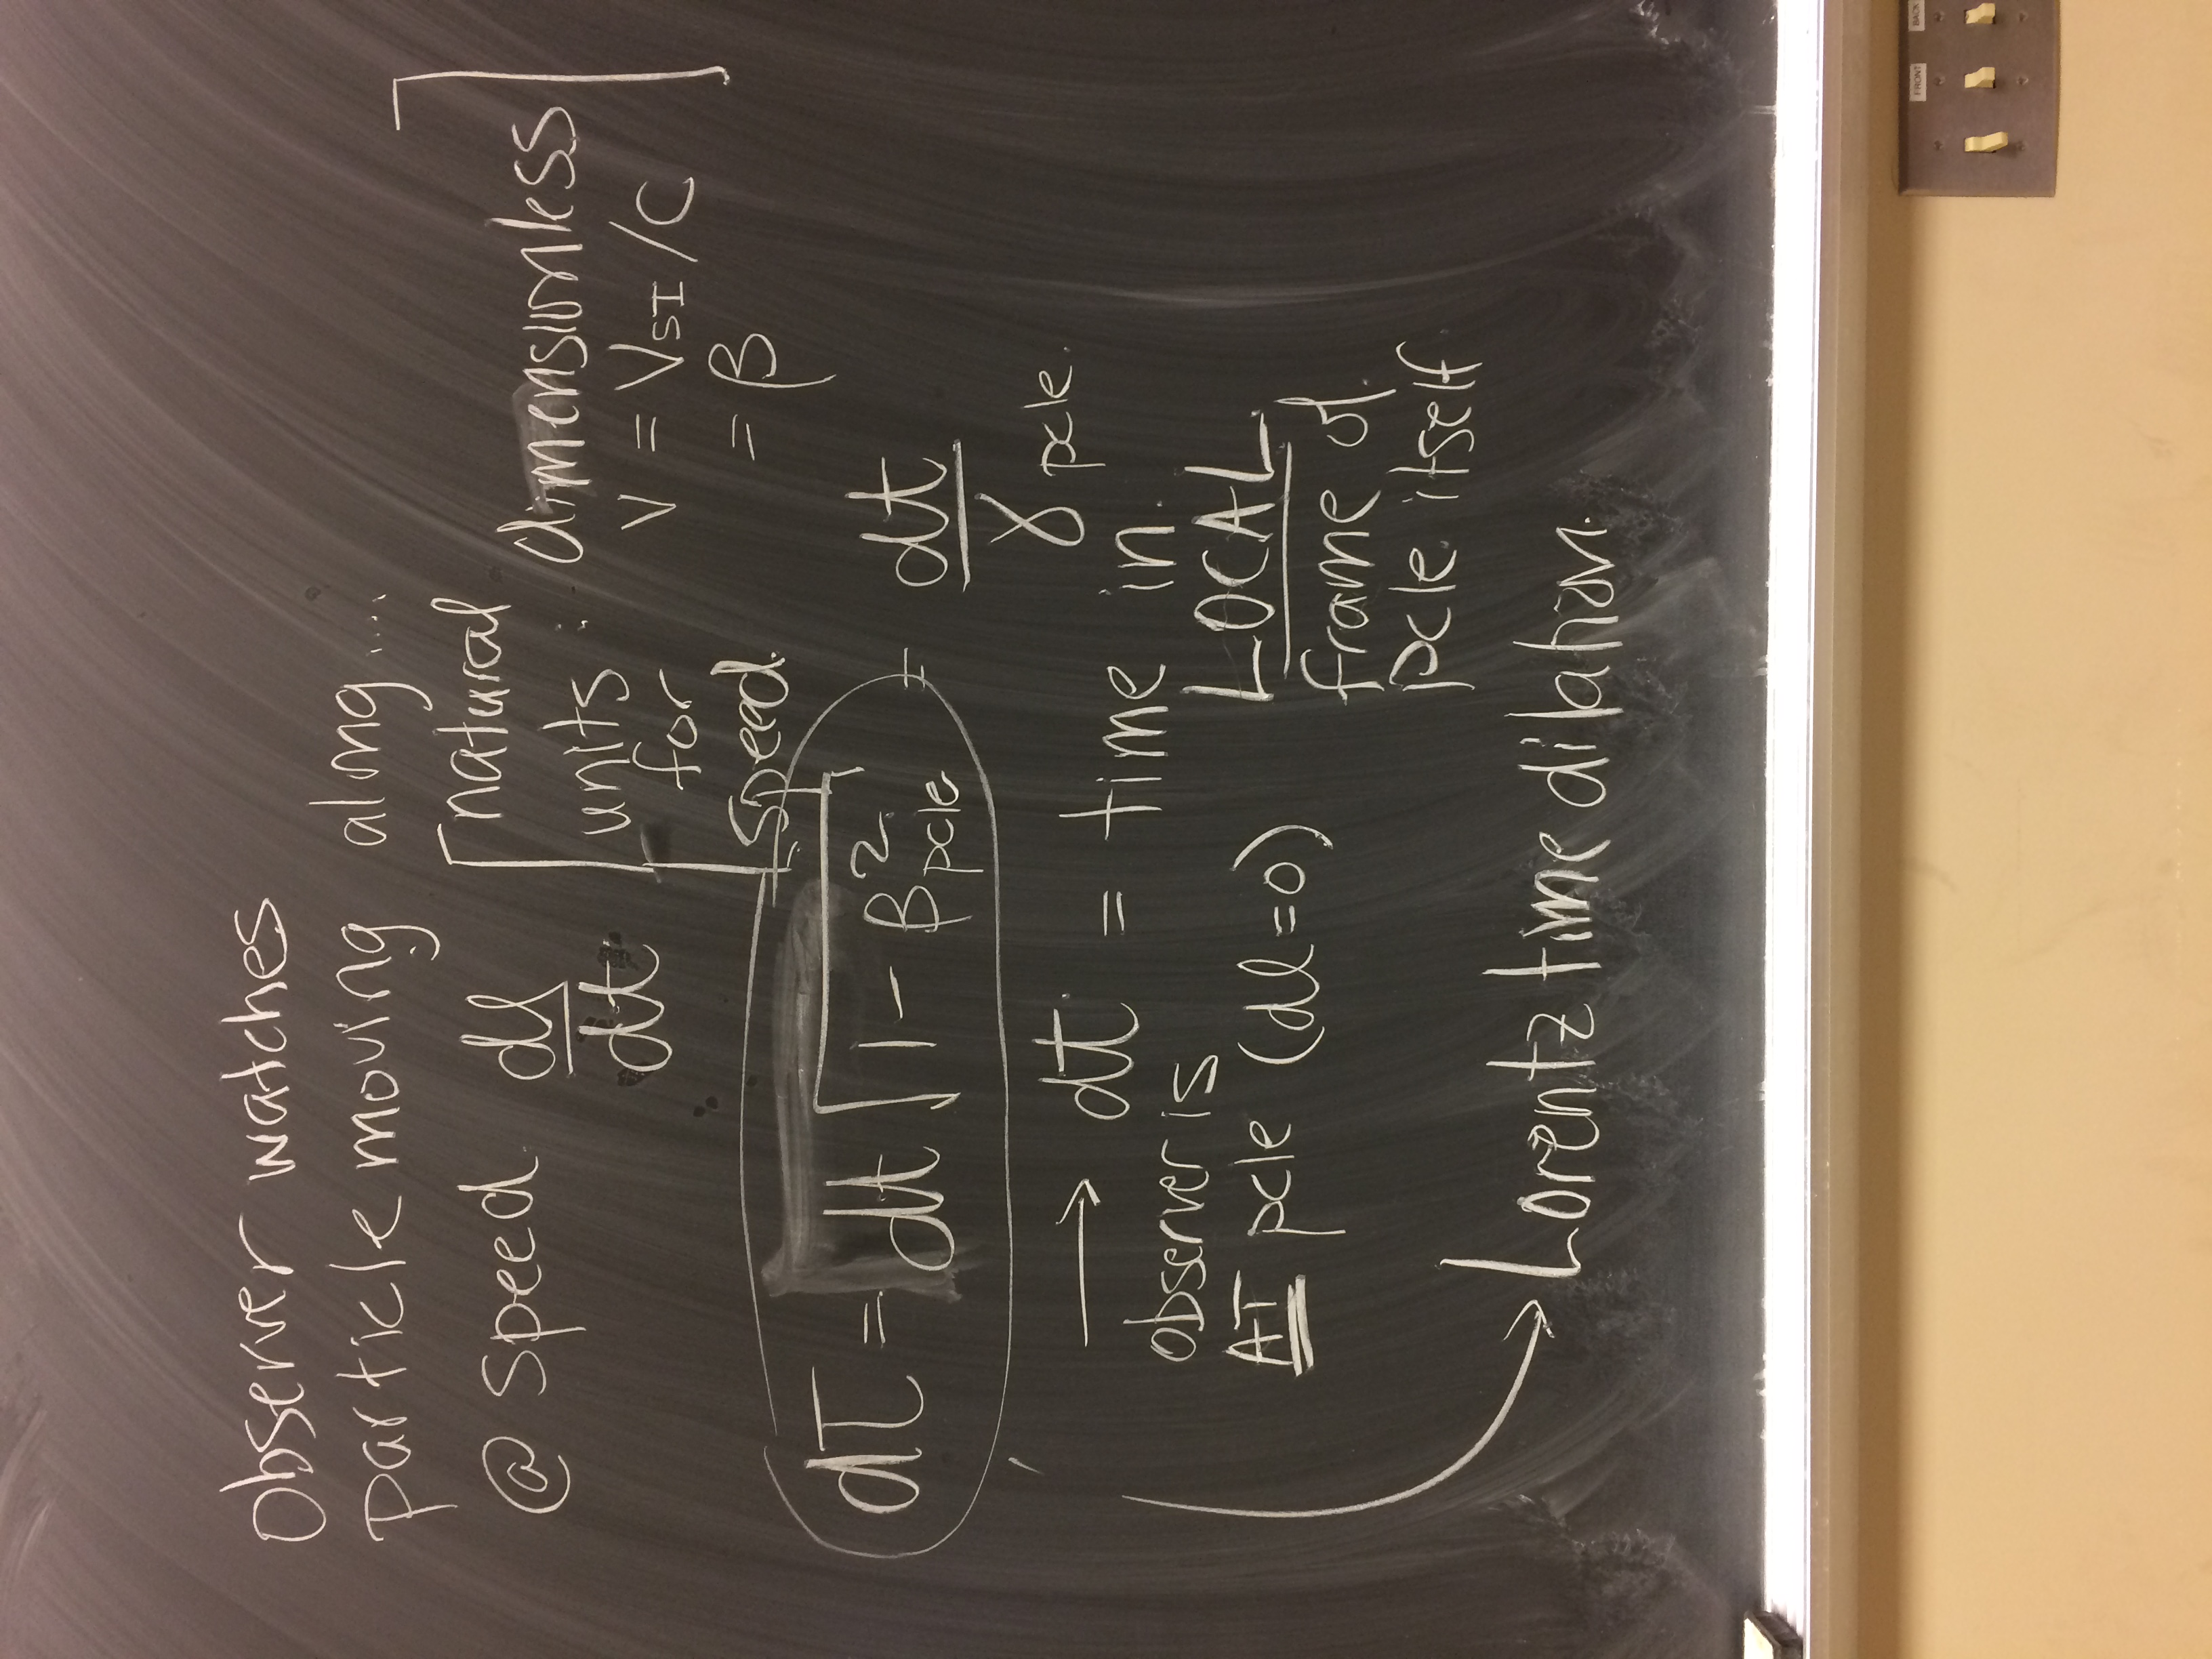 Observer watches
particle moving along....
@ speed dl/dt
[natural units : for speed.
dimensionless
v = VSI/C
= β ]
dτ = dt √1 - β²pcle = dt/γpcle.
→ dt = time in
observer is
AT pcle (dl=0)
LOCAL
frame of
pcle itself
Lorentz time dilation.
FRONT
BACK